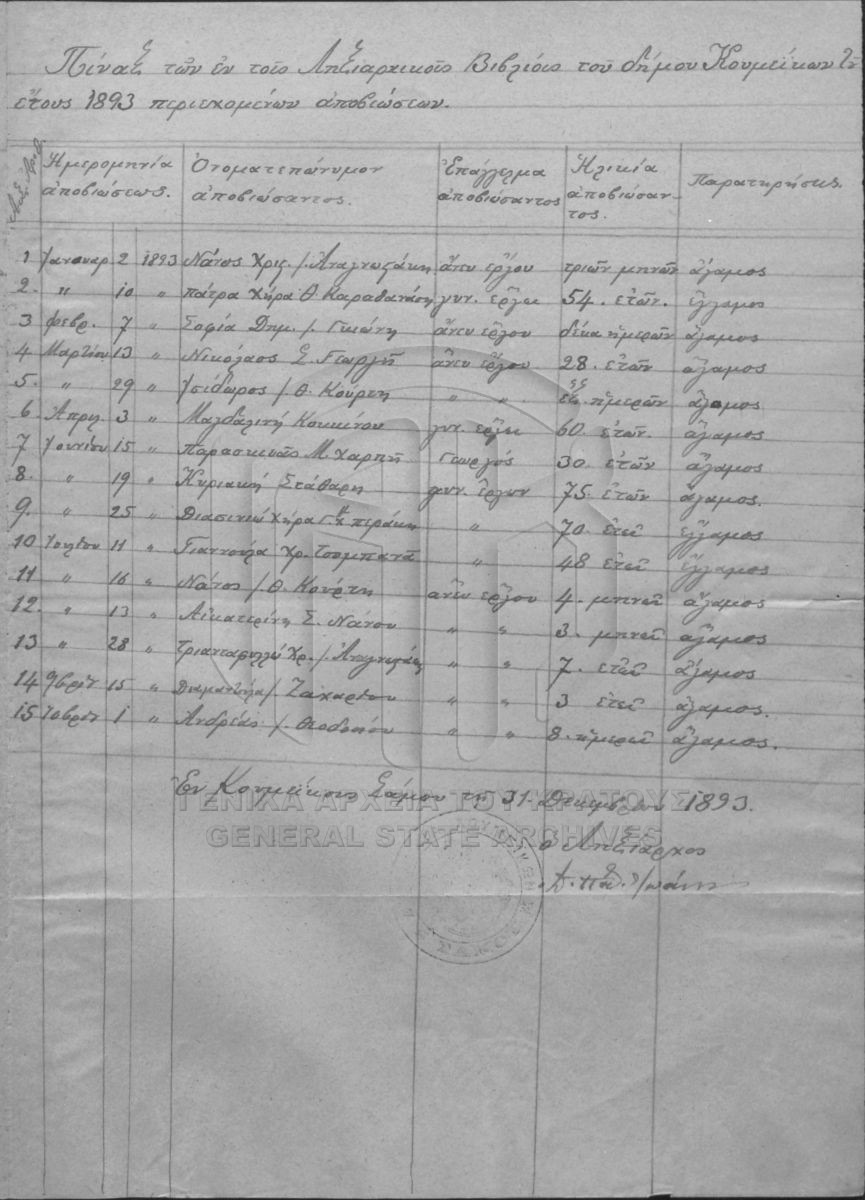 Πίναξ τῶν ἐν τοῖς Ληξιαρχικοῖς Βιβλίοις τοῦ δήμου Κουμεΐκων τοῦ
ἔτους 1893 περιεχομένων ἀποβιώσεων.
Αὔξ. Ἀριθ. Ἡμερομηνία ἀποβιώσεως. Ὀνοματεπώνυμον ἀποβιώσαντος. Ἐπάγγελμα ἀποβιώσαντος Ἡλικία ἀποβιώσαντος. Παρατηρήσεις.
1 Ἰανουαρ 2 1893 Νάνος Χρις. /. Ἀναγνωσάκη ἄνευ ἔργου τριῶν μηνῶν ἄγαμος
2. " 10 " Πάτρα χήρα Θ. Καραθανάση γυν. ἔργα 54. ἐτῶν. ἔγγαμος
3 Φεβρ. 7 " Σοφία Δημ. /. Γιώνη ἄνευ ἔργου δέκα ἡμερῶν ἄγαμος
4 Μαρτίου 13 " Νικόλαος Σ. Γεωργῆ ἄνευ ἔργου 28. ἐτῶν ἄγαμος
5. " 29 " Ἰσίδωρος /. Θ. Κούρτη " " ἓξ ἡμερῶν ἄγαμος
6. Ἀπριλ 3 " Μαγδαλινή γυν. ἔργα 60. ἐτῶν. ἄγαμος
7 Ἰουνίου 15 " Παρασκευᾶς Μ. Χαρπῆ Γεωργός 30. ἐτῶν ἄγαμος
8. " 19 " Κυριακή Στάθαρη γυν. ἔργων 75. ἐτῶν ἄγαμος.
9. " 25 " χήρα " 70. ἐτῶν ἔγγαμος
10 Ἰουλίου 11 " Γιαννούλα Χρ. Τσομπανᾶ " 48 ἐτῶν ἔγγαμος
11 " 16 " Νάνος /. Θ. Κούρτη ἄνευ ἔργου 4. μηνῶν ἄγαμος
12. " 13 " Αἰκατερίνη Σ. Νάνου " " 3. μηνῶν ἄγαμος
13 " 28 " Τριανταφυλλώ Χρ. /. " " 7. ἐτῶν ἄγαμος
14 9βρίου 15 " Διαμαντούλα /. Ζαχαρίου " " 3 ἐτῶν ἄγαμος.
15 10βρίου 1 " Ἀνδρέας /. Θεοδοσίου " " 8. ἡμερῶν ἄγαμος.
Ἐν Κουμεΐκοις Σάμου τῇ 31. Δεκεμβρίου 1893.
ΓΕΝΙΚΑ ΑΡΧΕΙΑ ΤΟΥ ΚΡΑΤΟΥΣ
GENERAL STATE ARCHIVES
ὁ Ληξίαρχος